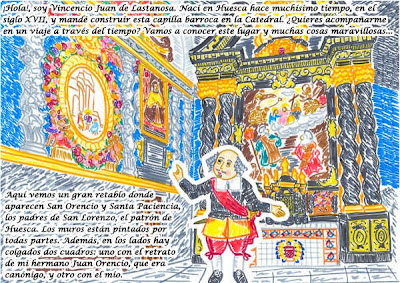 ¡Hola!, soy Vincencio Juan de Lastanosa. Nací en Huesca hace muchísimo tiempo, en el
siglo XVII, y mandé construir esta capilla barroca en la Catedral. ¿Quieres acompañarme
en un viaje a través del tiempo? Vamos a conocer este lugar y muchas cosas maravillosas...
Aquí vemos un gran retablo donde
aparecen San Orencio y Santa Paciencia,
los padres de San Lorenzo, el patrón de
Huesca. Los muros están pintados por
todas partes. Además, en los lados hay
colgados dos cuadros: uno con el retrato
de mi hermano Juan Orencio, que era
canónigo, y otro con el mío.